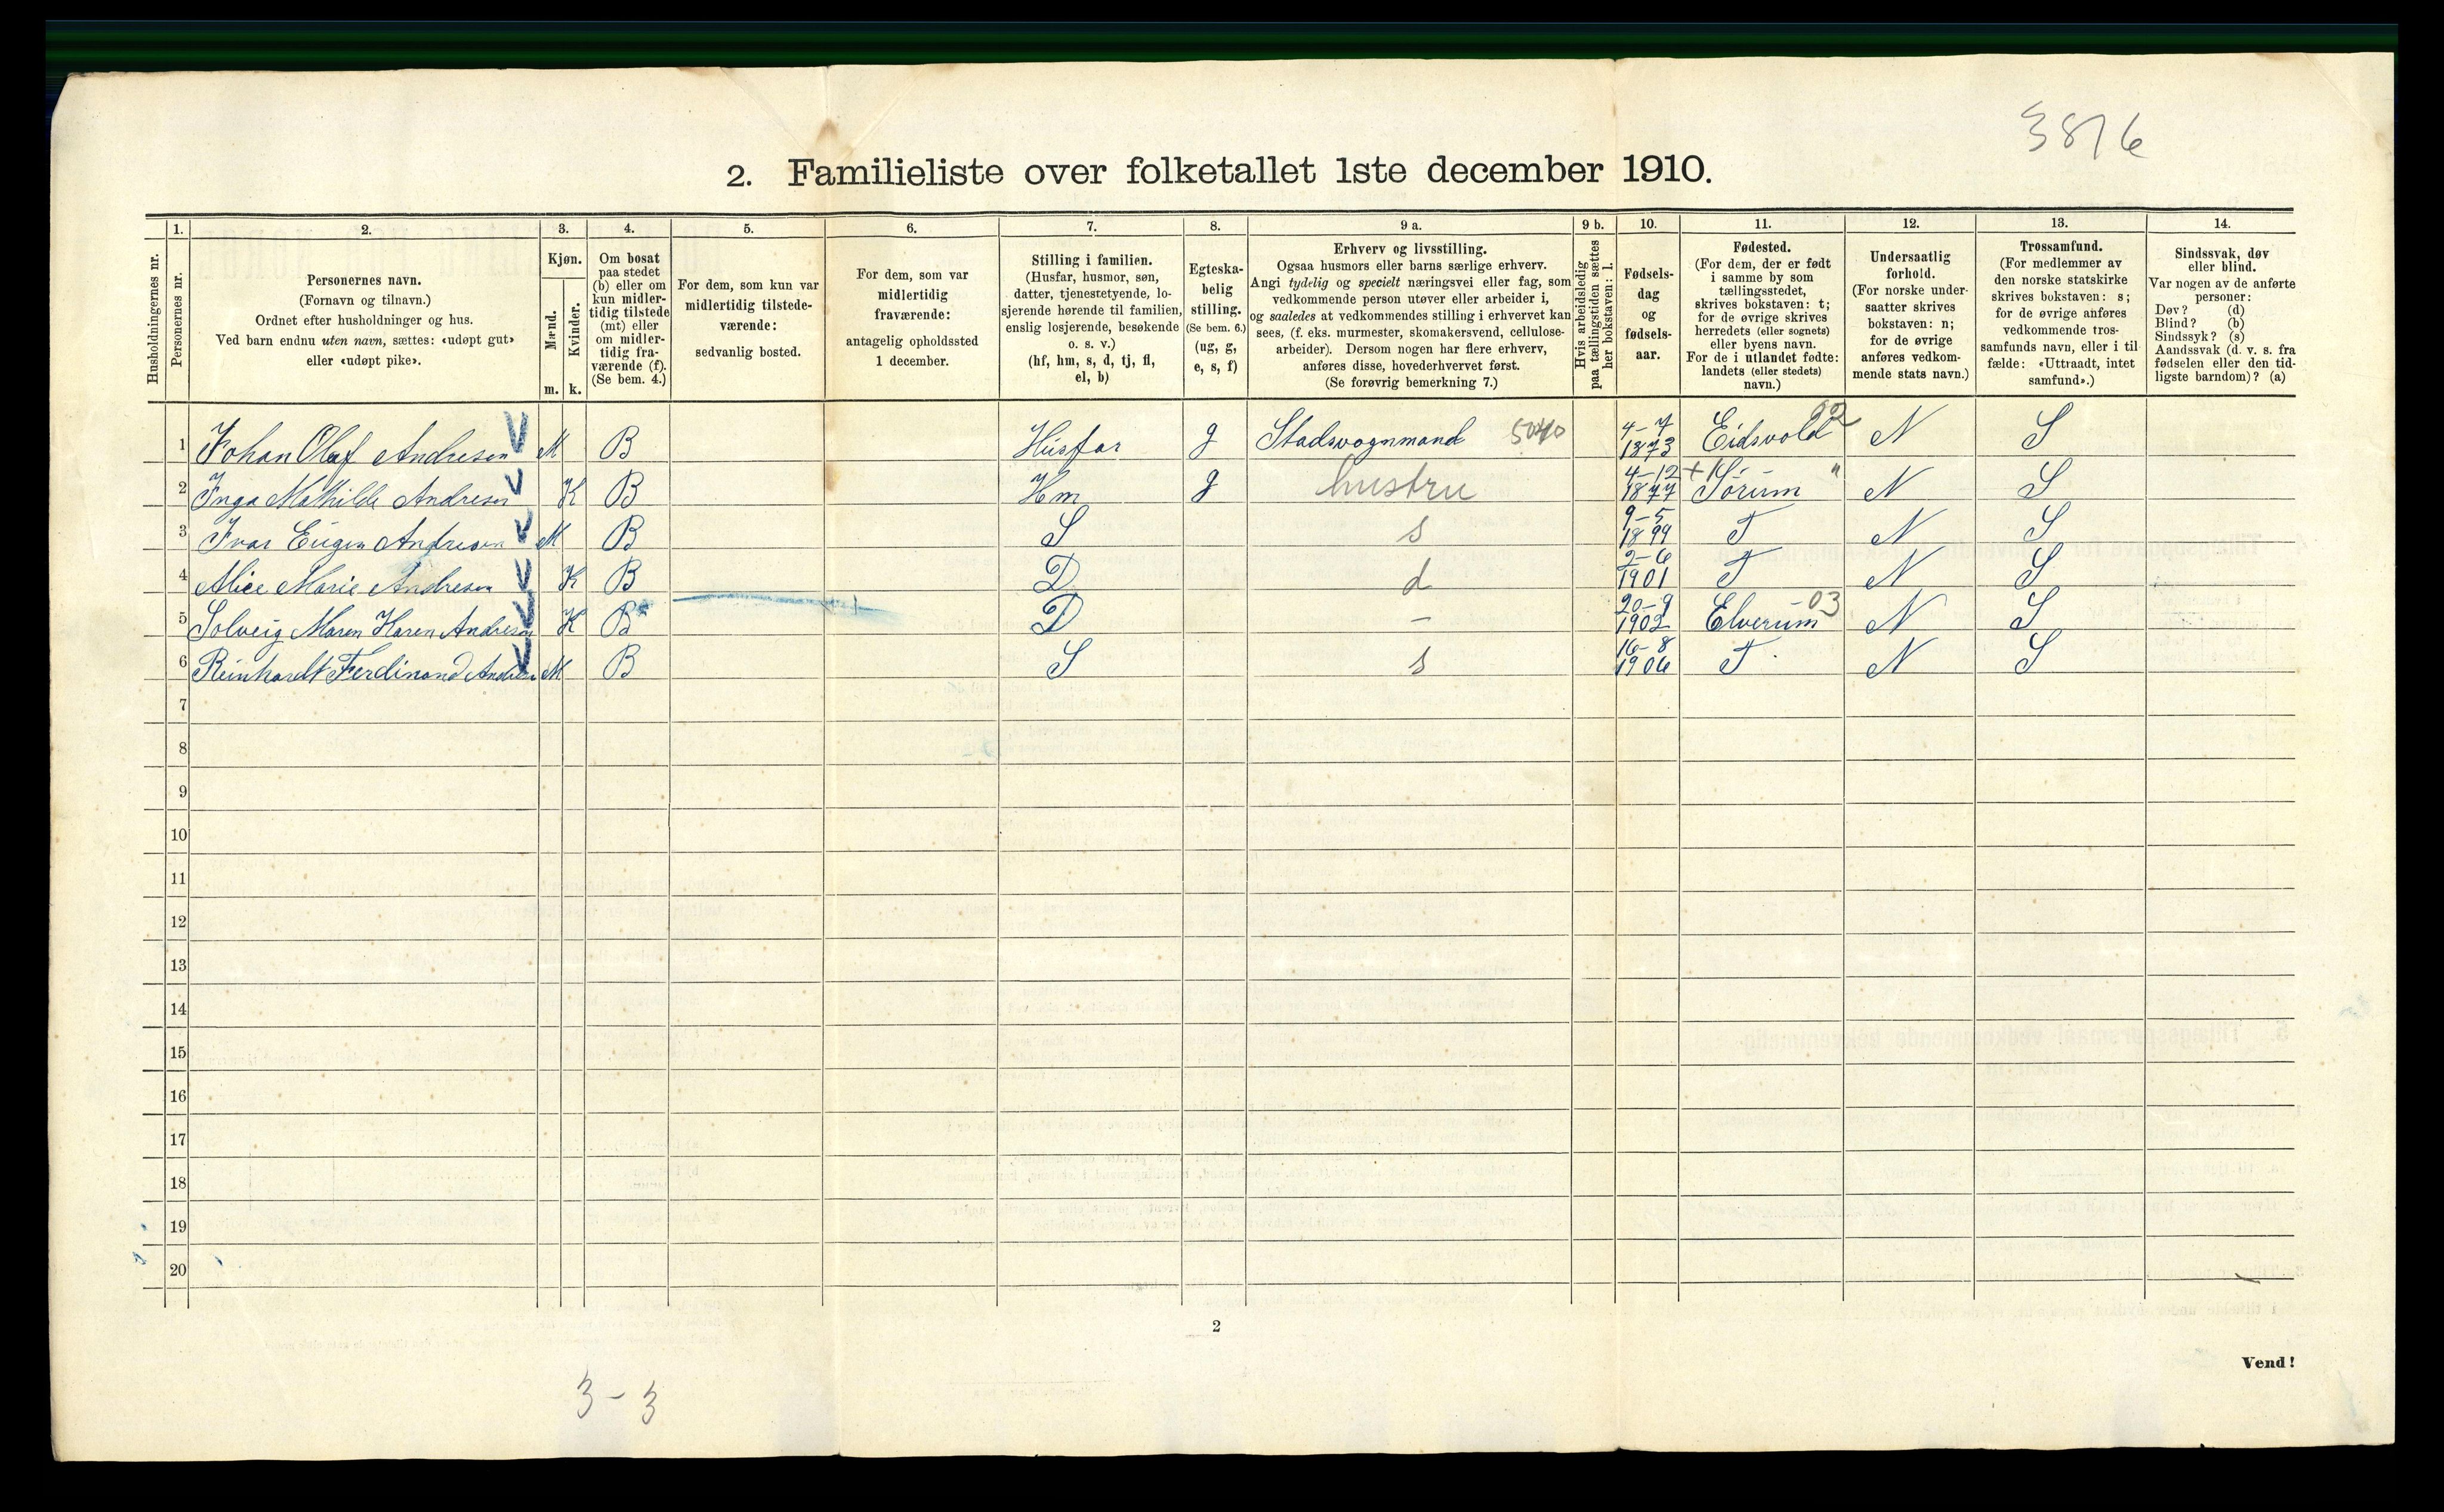 3876
2. Familieliste over folketallet 1ste december 1910.
Husholdningernes nr.
1.
Personernes nr.
2.
Personernes navn.
(Fornavn og tilnavn.)
Ordnet efter husholdninger og hus.
Ved barn endnu uten navn, sættes: «udøpt gut»
eller «udøpt pike».
3.
Kjøn.
Mænd.
m.
Kvinder.
k.
4.
Om bosat
paa stedet
(b) eller om
kun midler-
tidig tilstede
(mt) eller
om midler-
tidig fra-
værende (f).
(Se bem. 4.)
5.
For dem, som kun var
midlertidig tilstede-
værende:
sedvanlig bosted.
6.
For dem, som var
midlertidig
fraværende:
antagelig opholdssted
1 december.
7.
Stilling i familien.
(Husfar, husmor, søn,
datter, tjenestetyende, lo-
sjerende hørende til familien,
enslig losjerende, besøkende
o. s. v.)
(hf, hm, s, d, tj, fl,
el, b)
8.
Egteska-
belig
stilling.
(Se bem. 6.)
(ug, g,
e, s, f)
9 a.
Erhverv og livsstilling.
Ogsaa husmors eller barns særlige erhverv.
Angi tydelig og specielt næringsvei eller fag, som
vedkommende person utøver eller arbeider i,
og saaledes at vedkommendes stilling i erhvervet kan
sees, (f. eks. murmester, skomakersvend, cellulose-
arbeider). Dersom nogen har flere erhverv,
anføres disse, hovederhvervet først.
(Se forøvrig bemerkning 7.)
9 b.
Hvis arbeidsledig
paa tællingstiden sættes
her bokstaven: l.
10.
Fødsels-
dag
og
fødsels-
aar.
11.
Fødested.
(For dem, der er født
i samme by som
tællingsstedet,
skrives bokstaven: t;
for de øvrige skrives
herredets (eller sognets)
eller byens navn.
For de i utlandet fødte:
landets (eller stedets)
navn.)
12.
Undersaatlig
forhold.
(For norske under-
saatter skrives
bokstaven: n;
for de øvrige
anføres vedkom-
mende stats navn.)
13.
Trossamfund.
(For medlemmer av
den norske statskirke
skrives bokstaven: s;
for de øvrige anføres
vedkommende tros-
samfunds navn, eller i til-
fælde: «Uttraadt, intet
samfund».)
14.
Sindssvak, døv
eller blind.
Var nogen av de anførte
personer:
Døv? (d)
Blind? (b)
Sindssyk? (s)
Aandssvak (d. v. s. fra
fødselen eller den tid-
ligste barndom)? (a)
1 Johan Olaf Andresen M B Husfar g Stadsvognmand 5040 4-7 1873 Eidsvold 02 N S
2 Inga Mathilde Andresen K B Hm g hustru 4-12 1877 Sørum " N S
3 Ivar Eugen Andresen M B S s 9-5 1899 T N S
4 Alice Marie Andresen K B D d 2-6 1901 T N S
5 Solveig Maren Karen Andresen K B D - 20-9 1902 Elverum 03 N S
6 Reinhardt Ferdinand Andresen M B S s 16-8 1906 T N S
7
8
9
10
11
12
13
14
15
16
17
18
19
20
2
Vend!
3-3